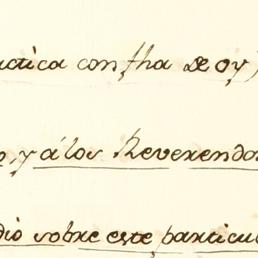 actica con fha de oy
o, y á los Reverendos
dio sobre este particu